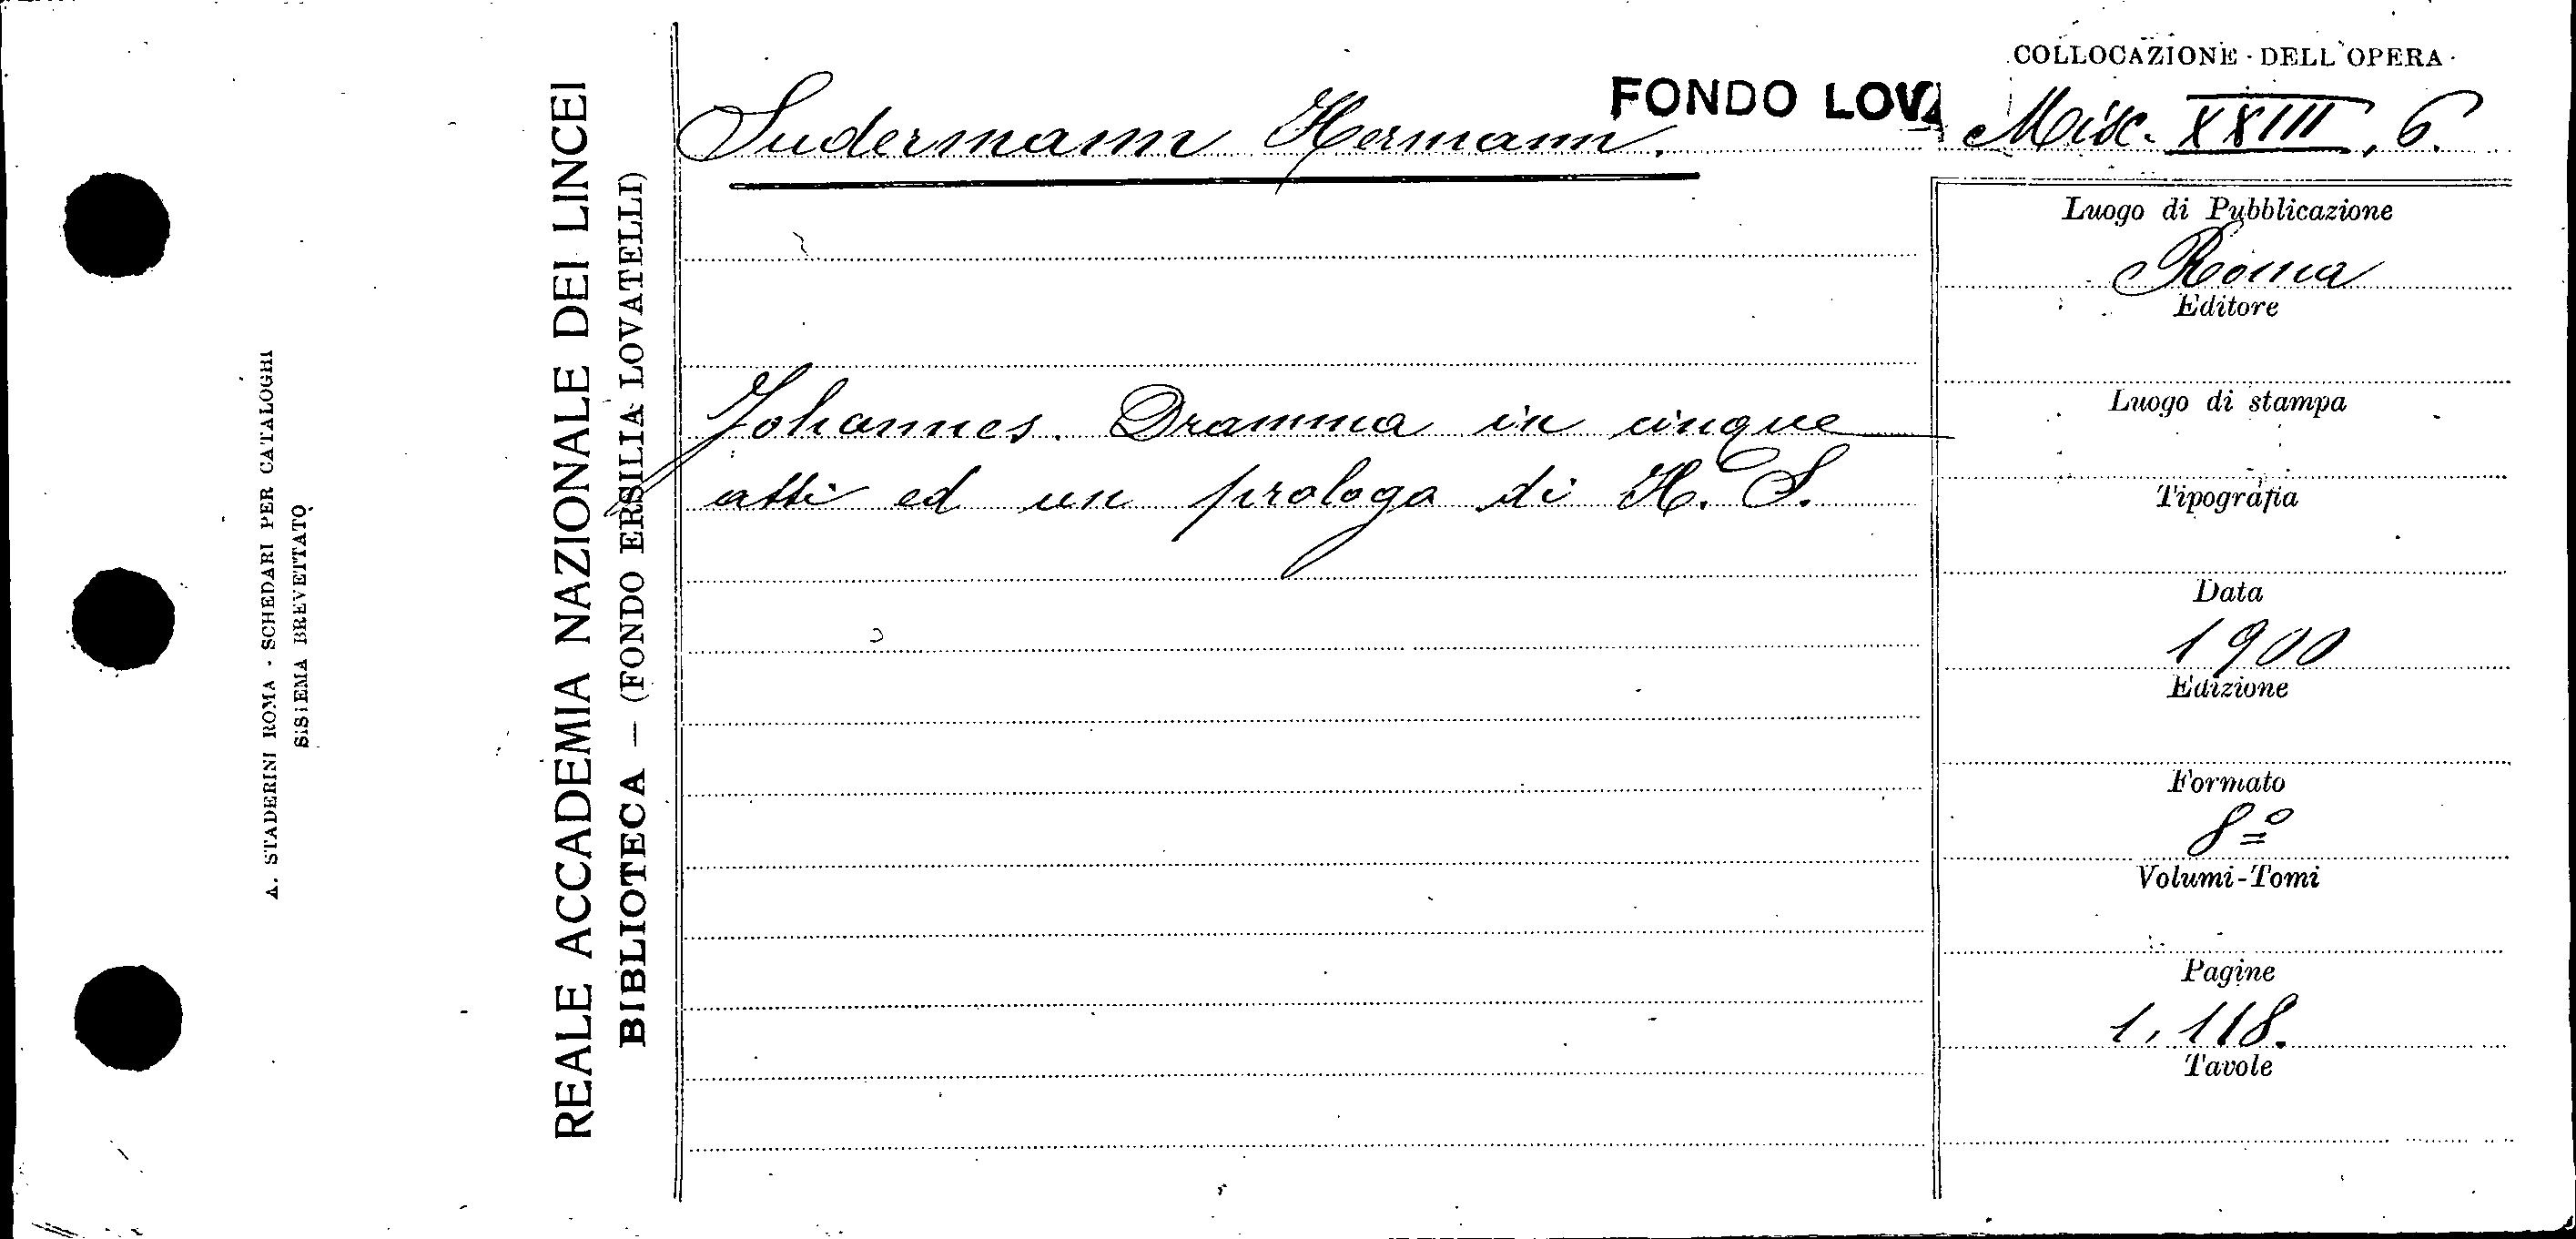 A. STADERINI ROMA - SCHEDARI PER CATALOGHI
SISTEMA BREVETTATO
REALE ACCADEMIA NAZIONALE DEI LINCEI
BIBLIOTECA — (FONDO ERSILIA LOVATELLI)
COLLOCAZIONE DELL'OPERA
FONDO LOVA
Sudermann Hermann.
Misc. XXIII, 6.
Johannes. Dramma in cinque
atti ed un prologo di H. S.
Luogo di Pubblicazione
Roma
Editore
Luogo di stampa
Tipografia
Data
1900
Edizione
Formato
8º
Volumi-Tomi
Pagine
1, 118.
Tavole